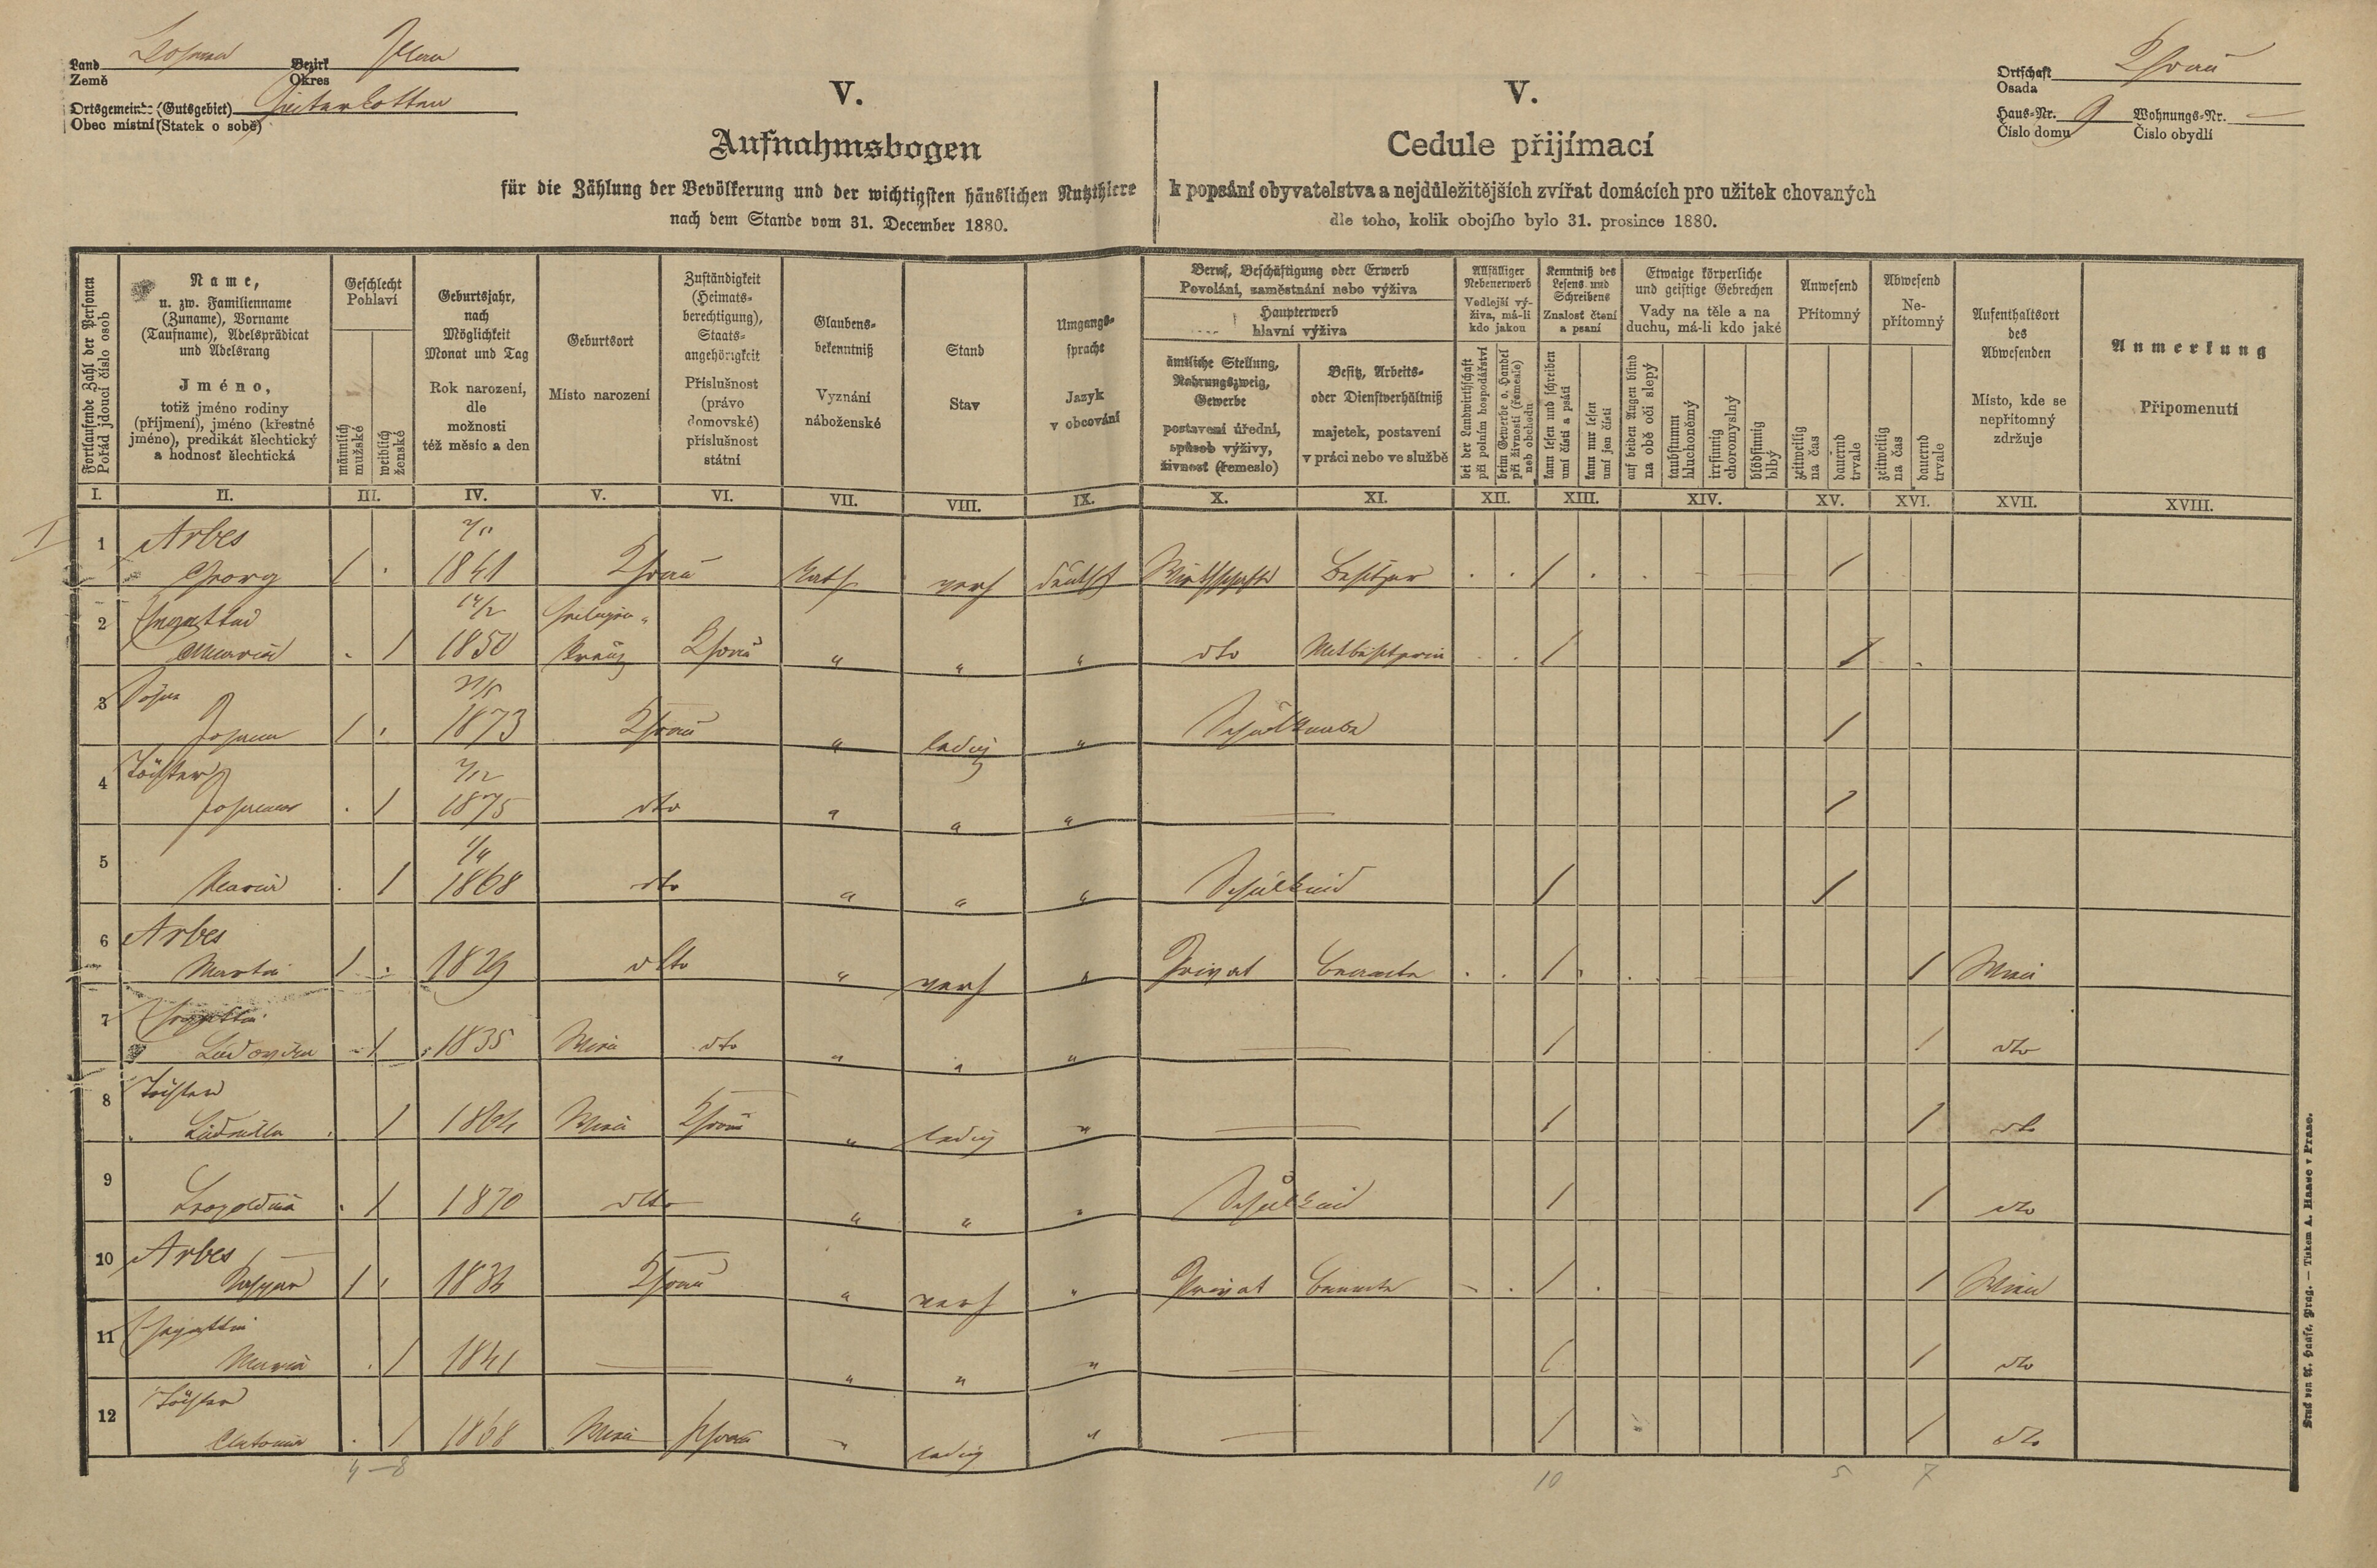 Land Böhmen Bezirk Plan
Země Okres
Ortsgemeinde (Gutsgebiet)
Obec místní (Statek o sobě)
V.
Aufnahmsbogen
für die Zählung der Bevölkerung und der wichtigsten häuslichen Nutzthiere
nach dem Stande vom 31. December 1880.
V.
Cedule přijímací
k popsání obyvatelstva a nejdůležitějších zvířat domácích pro užitek chovaných
dle toho, kolik obojího bylo 31. prosince 1880.
Ortschaft
Osada
Haus-Nr. 9 Wohnungs-Nr.
Číslo domu Číslo obydlí
Fortlaufende Zahl der Personen
Pořád jdoucí číslo osob
Name,
u. zw. Familienname
(Zuname), Vorname
(Taufname), Adelsprädicat
und Adelsrang
Jméno,
totiž jméno rodiny
(příjmení), jméno (křestné
jméno), predikát šlechtický
a hodnost šlechtická
Geschlecht
Pohlaví
männlich
mužské
weiblich
ženské
Geburtsjahr,
nach
Möglichkeit
Monat und Tag
Rok narození,
dle
možnosti
též měsíc a den
Geburtsort
Místo narození
Zuständigkeit
(Heimats-
berechtigung),
Staats-
angehörigkeit
Příslušnost
(právo
domovské)
příslušnost
státní
Glaubens-
bekenntniß
Vyznání
náboženské
Stand
Stav
Umgangs-
sprache
Jazyk
v obcování
Beruf, Beschäftigung oder Erwerb
Povolání, zaměstnání nebo výživa
Haupterwerb
hlavní výživa
ämtliche Stellung,
Nahrungszweig,
Gewerbe
postavení úřední,
spůsob výživy,
živnost (řemeslo)
Besitz, Arbeits-
oder Dienstverhältniß
majetek, postavení
v práci nebo ve službě
Allfälliger
Nebenerwerb
Vedlejší vý-
živa, má-li
kdo jakou
bei der Landwirthschaft
při polním hospodářství
beim Gewerbe o. Handel
při živnosti (řemesle)
neb obchodu
Kenntniß des
Lesens und
Schreibens
Znalost čtení
a psaní
kann lesen und schreiben
umí čísti a psáti
kann nur lesen
umí jen čísti
Etwaige körperliche
und geistige Gebrechen
Vady na těle a na
duchu, má-li kdo jaké
auf beiden Augen blind
na obě oči slepý
taubstumm
hluchoněmý
irrsinnig
choromyslný
blödsinnig
blbý
Anwesend
Přítomný
zeitweilig
na čas
dauernd
trvale
Abwesend
Ne-
přítomný
zeitweilig
na čas
dauernd
trvale
Aufenthaltsort
des
Abwesenden
Místo, kde se
nepřítomný
zdržuje
Anmerkung
Připomenutí
I. II. III. IV. V. VI. VII. VIII. IX. X. XI. XII. XIII. XIV. XV. XVI. XVII. XVIII.
1 Arbes
Georg / 1841 Kath verh deutsch Wirthschafts Besitzer / /
2 Gattin
Maria / 1850 Kreuz " " " dto Mitbesitzerin / /
3 Sohn
Johann / 1873 " ledig " Schulknabe /
4 Töchter
Johanna / 1875 dto " " " /
5
Maria / 1868 dto " " " Schulkind / /
6 Arbes
Martin / 1829 dto " verh " Privat Beamte / / Wien
7 Gattin
Ludovika / 1835 Wien dto " " " / / dto
8 Töchter
Ludmilla / 1864 Wien " ledig " / / dto
9
Leopoldina / 1870 dto " " " Schulkind / / dto
10 Arbes
Kaspar / 1834 " verh " Privat Beamte / / Wien
11 Gattin
Maria / 1841 " " " / / dto
12 Töchter
Antonia / 1868 Wien " ledig " / / dto
4 – 8 10 5 7
Druck von A. Haase, Prag. — Tiskem A. Haase v Praze.